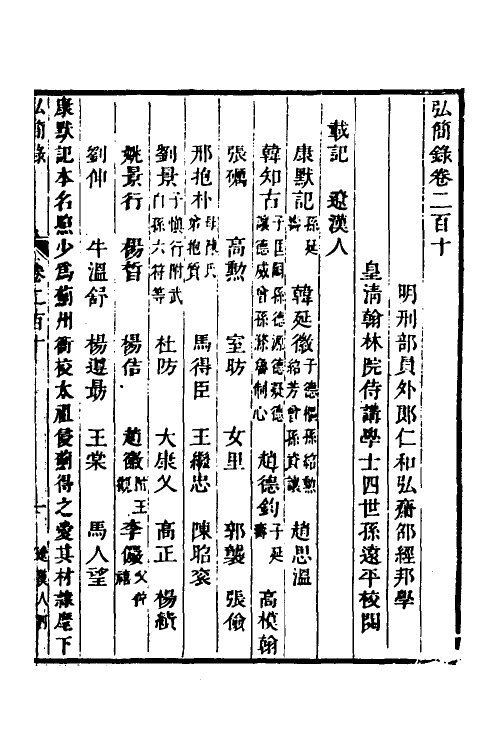 弘簡錄卷二百十
明刑部員外郎仁和弘齋邵經邦學
皇清翰林院侍講學士四世孫遠平校閱
載記 遼漢人
康默記孫延壽 韓延徽子德樞孫紹勲紹芳曾孫資讓 趙思溫
韓知古子匡嗣孫德源德凝德讓德威曾孫滌魯制心 趙德鈞子延壽 高模翰
張礪 高勲 室昉 女里 郭襲 張儉
邢抱朴母陳氏弟抱質 馬得臣 王繼忠 陳昭袞
劉景子愼行附武白孫六符等 杜防 大康乂 高正 楊績
姚景行 楊晳 楊佶 趙徽附王觀 李儼父仲禧
劉伸 牛溫舒 楊遵勗 王棠 馬人望
康默記本名照少爲薊州衙校太祖侵薊得之愛其材隷麾下
弘簡錄 卷二百十 一 遼漢人